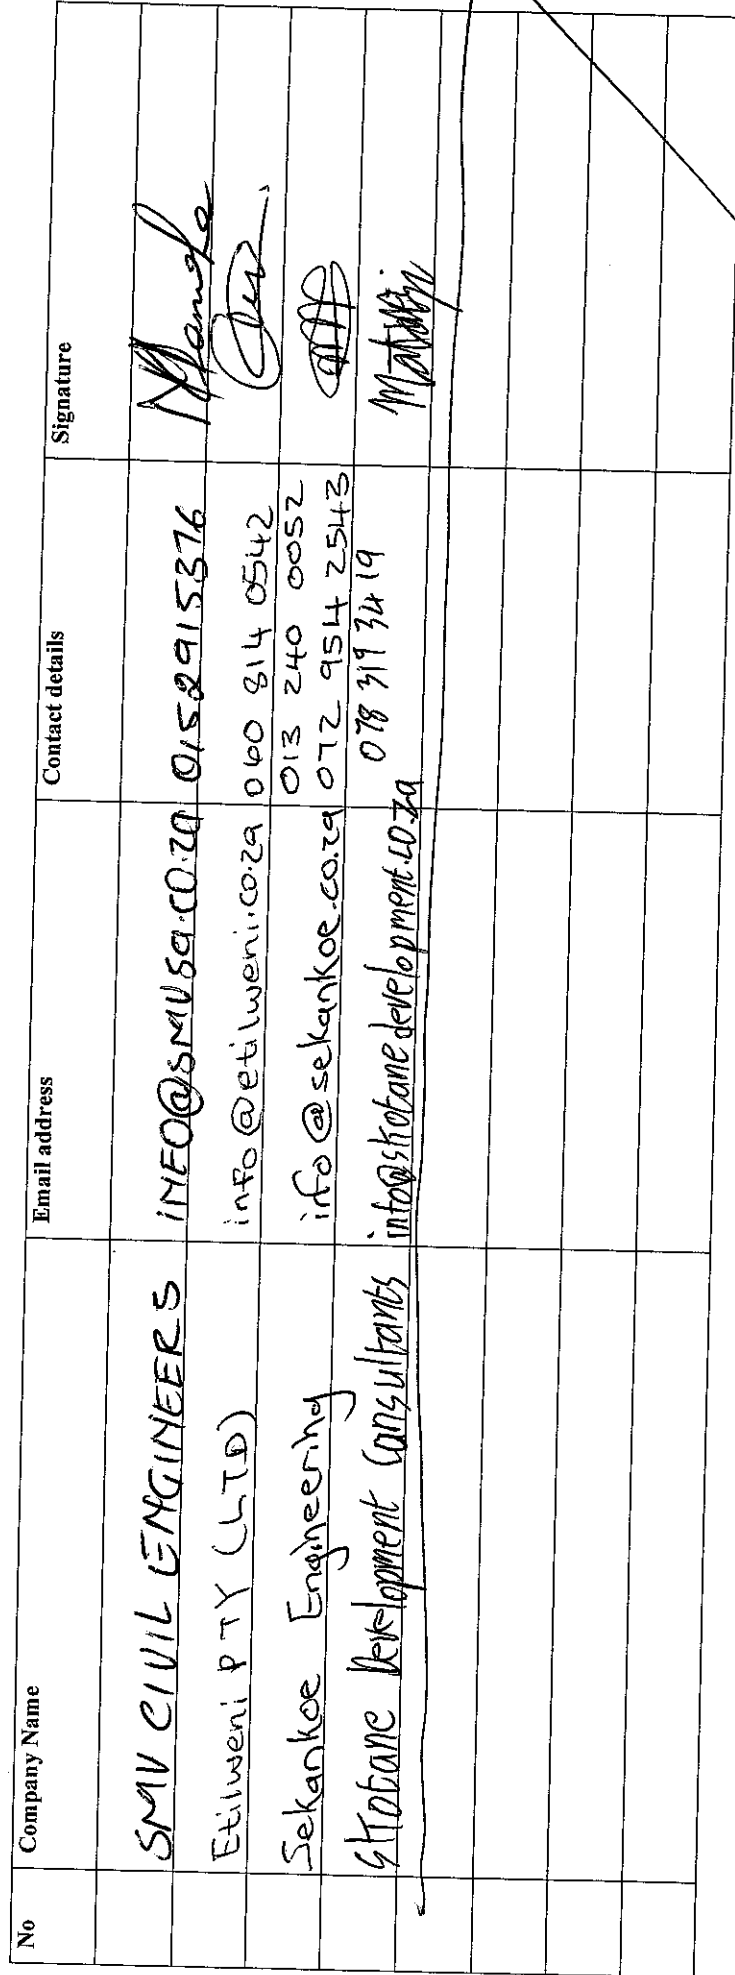 No Company Name Email address Contact details Signature
SMV CIVIL ENGINEERS INFO@SMVSA.CO.ZA 0152915376
Etilweni PTY (LTD) info@etilweni.co.za 060 814 0542
013 240 0052
Sekankoe Engineering info@sekankoe.co.za 072 954 2543
Skotane Development Consultants info@skotanedevelopment.co.za 078 319 3419